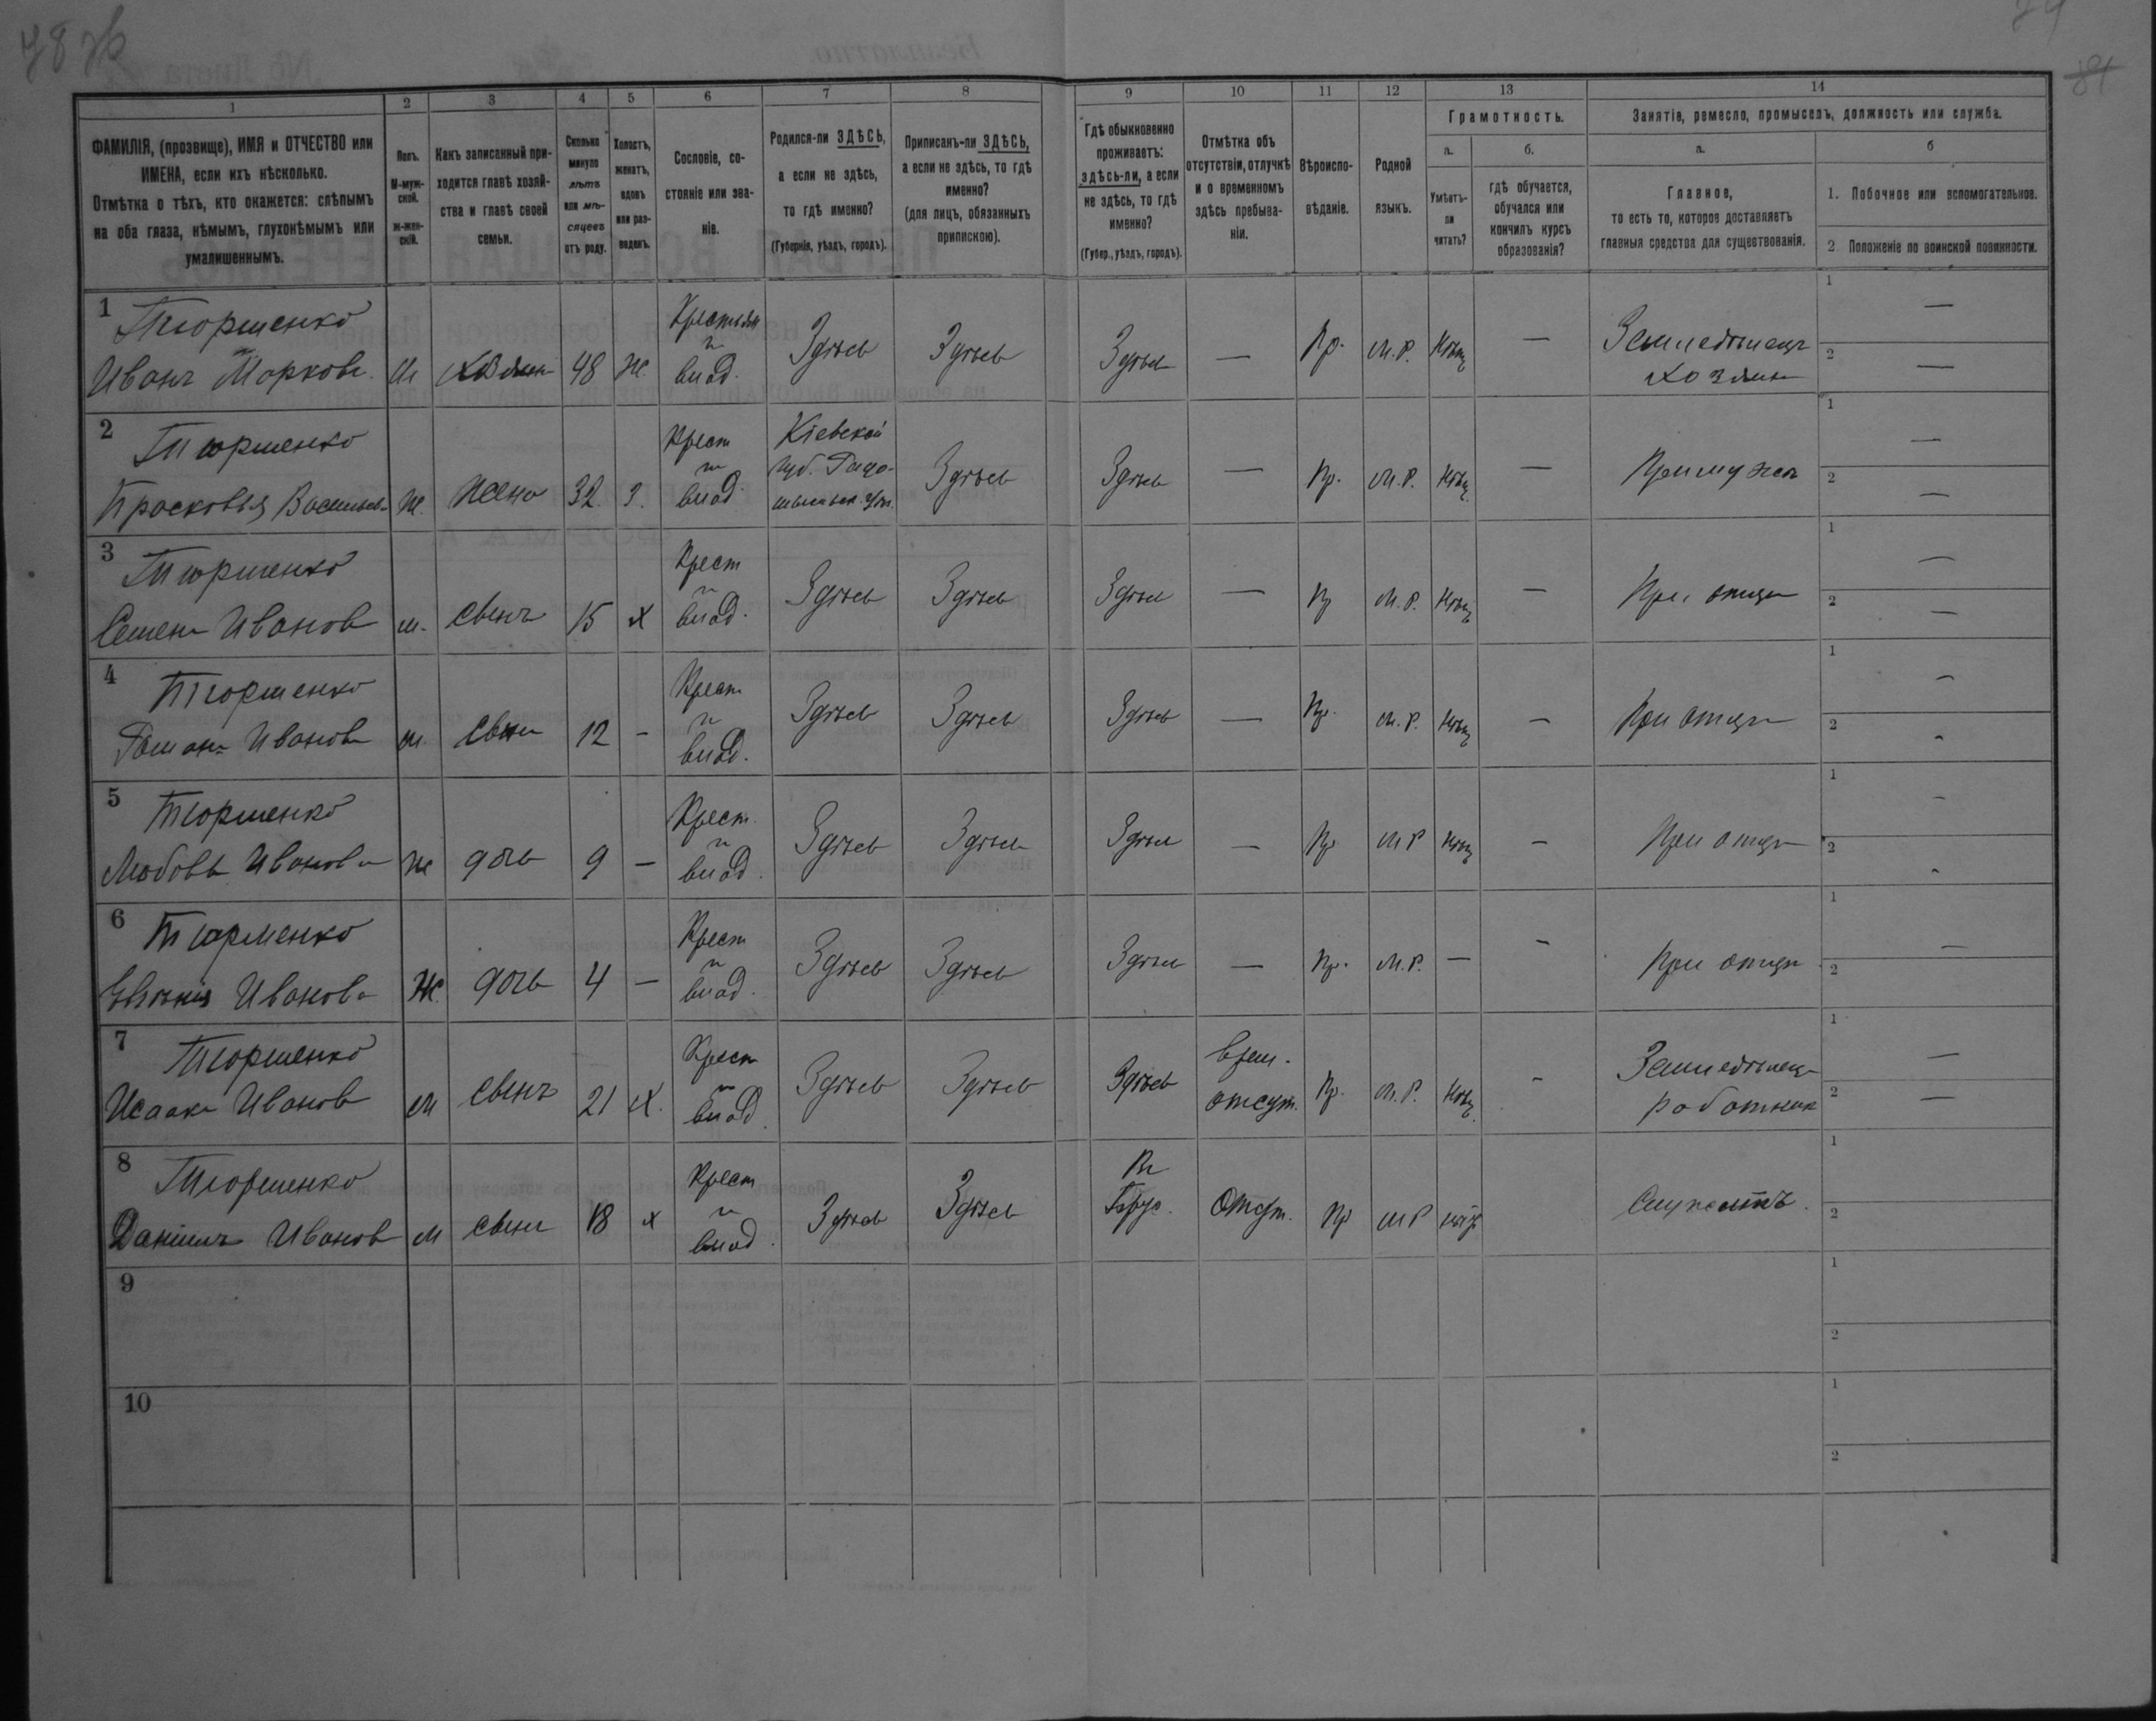 78 зв
1
2
3
4
5
6
7
8
9
10
11
12
13
14
ФАМИЛІЯ, (прозвище), ИМЯ и ОТЧЕСТВО или
ИМЕНА, если ихъ нѣсколько.
Отмѣтка о тѣхъ, кто окажется: слѣпымъ
на оба глаза, нѣмымъ, глухонѣмымъ или
умалишеннымъ.
Полъ.
М-муж-
ской.
ж-жен-
скій.
Какъ записанный при-
ходится главѣ хозяй-
ства и главѣ своей
семьи.
Сколько
минуло
лѣтъ
или мѣ-
сяцевъ
отъ роду.
Холостъ,
женатъ,
вдовъ
или раз-
веденъ.
Сословіе, со-
стояніе или зва-
ніе.
Родился-ли ЗДѢСЬ,
а если не здѣсь,
то гдѣ именно?
(Губернія, уѣздъ, городъ).
Приписанъ-ли ЗДѢСЬ,
а если не здѣсь, то гдѣ
именно?
(для лицъ, обязанныхъ
припискою).
Гдѣ обыкновенно
проживаетъ:
здѣсь-ли, а если
не здѣсь, то гдѣ
именно?
(Губер., уѣздъ, городъ).
Отмѣтка объ
отсутствіи, отлучкѣ
и о временномъ
здѣсь пребыва-
ніи.
Вѣроиспо-
вѣданіе.
Родной
языкъ.
Грамотность.
а.
Умѣетъ-
ли
читать?
б.
гдѣ обучается,
обучался или
кончилъ курсъ
образованія?
Занятія, ремесло, промыселъ, должность или служба.
а.
Главное,
то есть то, которое доставляетъ
главныя средства для существованія.
б
1. Побочное или вспомогательное.
2 Положеніе по воинской повинности.
1 Тюрменко
Иванъ Марковъ м хозяинъ 48 ж. Крестьян и влад. Здѣсь Здѣсь Здѣсь — Пр. М.Р. Нѣтъ — Земледѣлецъ хозяинъ 1 — 2 —
2 Тюрменко
Прасковья Васильев ж. жена 32. з. Крест и влад. Кіевской губ. Здѣсь Здѣсь — Пр. М.Р. Нѣтъ — При мужѣ 1 — 2 —
3 Тюрменко
Семенъ Иванов м. сынъ 15 х Крест и влад. Здѣсь Здѣсь Здѣсь — Пр М.Р. Нѣтъ — При отцѣ 1 — 2 —
4 Тюрменко
Романъ Иванов м. сынъ 12 - Крест и влад. Здѣсь Здѣсь Здѣсь — Пр. М.Р. Нѣтъ — При отцѣ 1 — 2 -
5 Тюрменко
Любовь Иванова ж дочь 9 — Крест. и влад. Здѣсь Здѣсь Здѣсь — Пр. М Р Нѣтъ — При отцѣ 1 — 2 -
6 Тюрменко
Иванова Ж. дочь 4 — Крест и влад. Здѣсь Здѣсь Здѣсь — Пр. М.Р. — - При отцѣ 1 — 2
7 Тюрменко
Исаакъ Иванов м сынъ 21 х. Крест и влад. Здѣсь Здѣсь Здѣсь врем. отсут. Пр. М.Р. Нѣтъ - Земледѣлецъ работник 1 — 2 —
8 Тюрменко
Даніилъ Иванов м сынъ 18 х Крест и влад. Здѣсь Здѣсь Отсут. Пр М Р нѣтъ 1 2
9 1 2
10 1 2